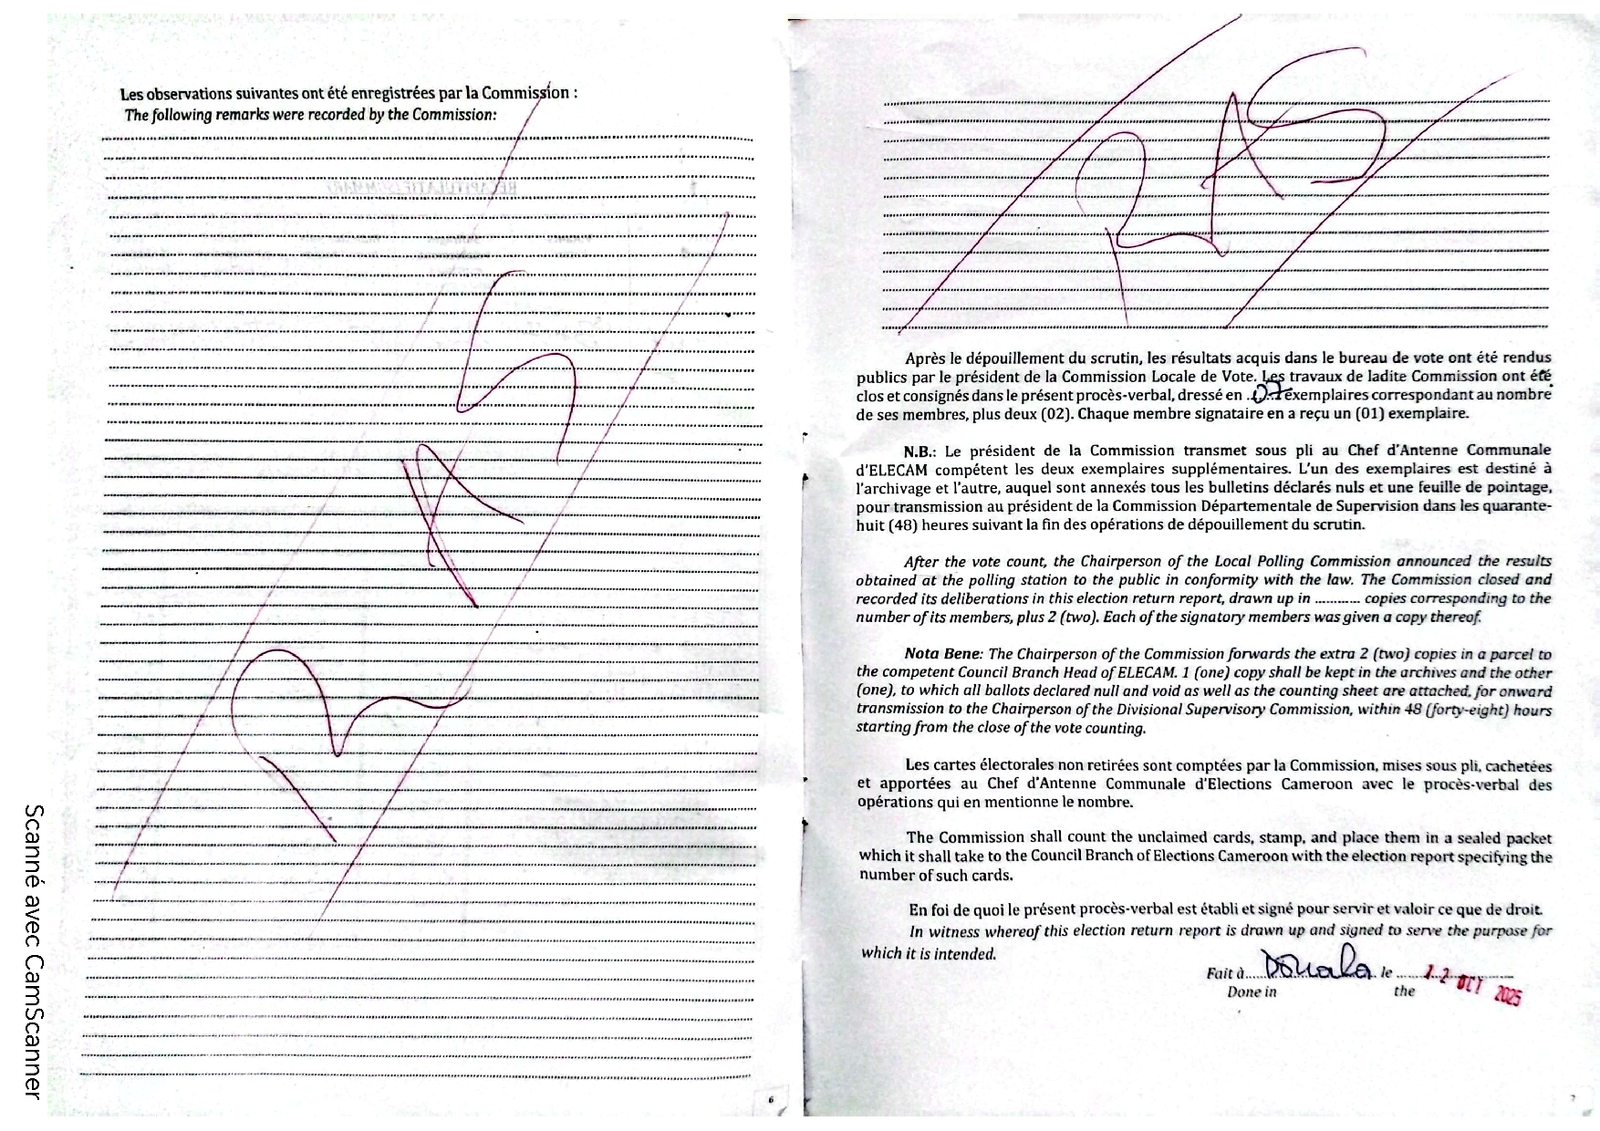 Les observations suivantes ont été enregistrées par la Commission :
The following remarks were recorded by the Commission:
RAS
6
Scanné avec CamScanner
RAS
Après le dépouillement du scrutin, les résultats acquis dans le bureau de vote ont été rendus
publics par le président de la Commission Locale de Vote. Les travaux de ladite Commission ont été
clos et consignés dans le présent procès-verbal, dressé en 07 exemplaires correspondant au nombre
de ses membres, plus deux (02). Chaque membre signataire en a reçu un (01) exemplaire.
N.B.: Le président de la Commission transmet sous pli au Chef d'Antenne Communale
d'ELECAM compétent les deux exemplaires supplémentaires. L'un des exemplaires est destiné à
l'archivage et l'autre, auquel sont annexés tous les bulletins déclarés nuls et une feuille de pointage,
pour transmission au président de la Commission Départementale de Supervision dans les quarante-
huit (48) heures suivant la fin des opérations de dépouillement du scrutin.
After the vote count, the Chairperson of the Local Polling Commission announced the results
obtained at the polling station to the public in conformity with the law. The Commission closed and
recorded its deliberations in this election return report, drawn up in ............ copies corresponding to the
number of its members, plus 2 (two). Each of the signatory members was given a copy thereof.
Nota Bene: The Chairperson of the Commission forwards the extra 2 (two) copies in a parcel to
the competent Council Branch Head of ELECAM. 1 (one) copy shall be kept in the archives and the other
(one), to which all ballots declared null and void as well as the counting sheet are attached, for onward
transmission to the Chairperson of the Divisional Supervisory Commission, within 48 (forty-eight) hours
starting from the close of the vote counting.
Les cartes électorales non retirées sont comptées par la Commission, mises sous pli, cachetées
et apportées au Chef d'Antenne Communale d'Elections Cameroon avec le procès-verbal des
opérations qui en mentionne le nombre.
The Commission shall count the unclaimed cards, stamp, and place them in a sealed packet
which it shall take to the Council Branch of Elections Cameroon with the election report specifying the
number of such cards.
En foi de quoi le présent procès-verbal est établi et signé pour servir et valoir ce que de droit.
In witness whereof this election return report is drawn up and signed to serve the purpose for
which it is intended.
Fait à..... Douala le ..... 12 OCT 2025
Done in the
7